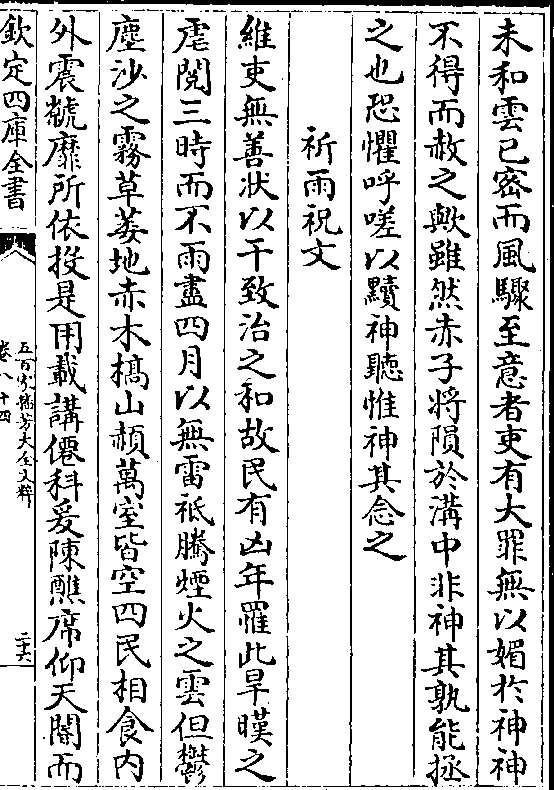 未和雲已密而風驟至意者吏有大罪無以媚於神神
不得而赦之歟雖然赤子將隕於溝中非神其孰能拯
之也恐懼呼嗟以黷神聽惟神其念之
祈雨祝文
維吏無善狀以干致治之和故民有凶年罹此旱暵之
虐閲三時而不雨盡四月以無雷祇騰煙火之雲但鬱
塵沙之霧草萎地赤木槁山赬萬室皆空四民相食内
外震虩靡所依投是用載講僊科爰陳醮席仰天閽而
欽定四庫全書
五百家播芳大全文粹
卷八十四
二十六